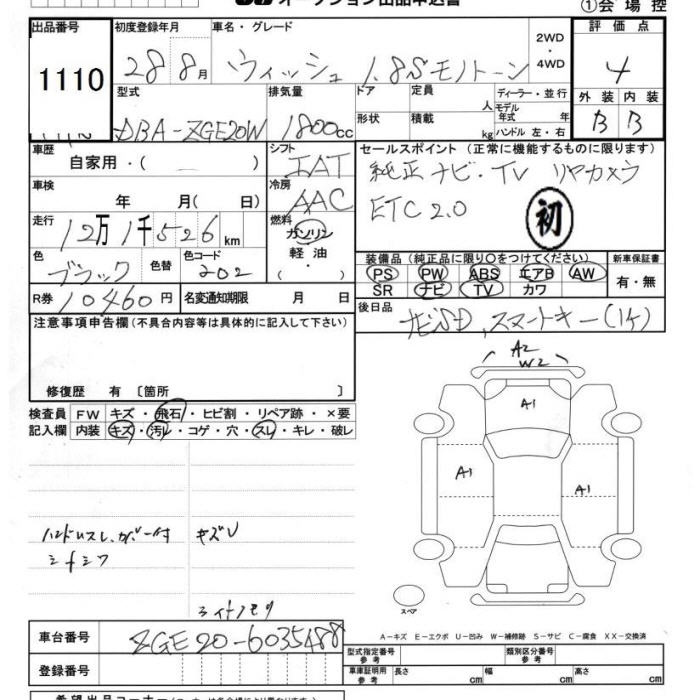 オークション出品申込書
①会場控
出品番号 初度登録年月 車名・グレード 2WD・4WD 評価点
1110 28 8月 ウィッシュ 1.8Sモノトーン 4
型式 排気量 ドア 定員 人 ディーラー・並行 外装 内装
DBA-ZGE20W 1800cc 形状 積載 kg モデル年式 年 ハンドル 左・右 B B
車歴 シフト セールスポイント (正常に機能するものに限ります)
自家用・( ) IAT 純正ナビ・TV リヤカメラ
車検 冷房 ETC2.0
年 月( 日) AAC 初
走行 12万1千526km 燃料 ガソリン
軽油
装備品 (純正品に限り○をつけてください) 新車保証書
色 色替 色コード
ブラック 202
PS PW ABS エアB AW 有・無
SR ナビ TV カワ
R券 10460円 名変通知期限 月 日
後日品
ナビSD、スマートキー(1ケ)
注意事項申告欄(不具合内容等は具体的に記入して下さい)
修復歴 有 〔箇所 〕
A2
W2
A1
A1 A1
検査員 FW キズ・飛石・ヒビ割・リペア跡・×要
記入欄 内装 キズ・汚レ・コゲ・穴・スレ・キレ・破レ
ハンドルスレ、カバー付 キズU
シートシワ
スペア
A-キズ E-エクボ U-凹み W-補修跡 S-サビ C-腐食 XX-交換済
車台番号 ZGE20-6035488
型式指定番号 参考 類別区分番号 参考
登録番号
車庫証明用 参考 長さ cm 幅 cm 高さ cm
希望出品コーナー